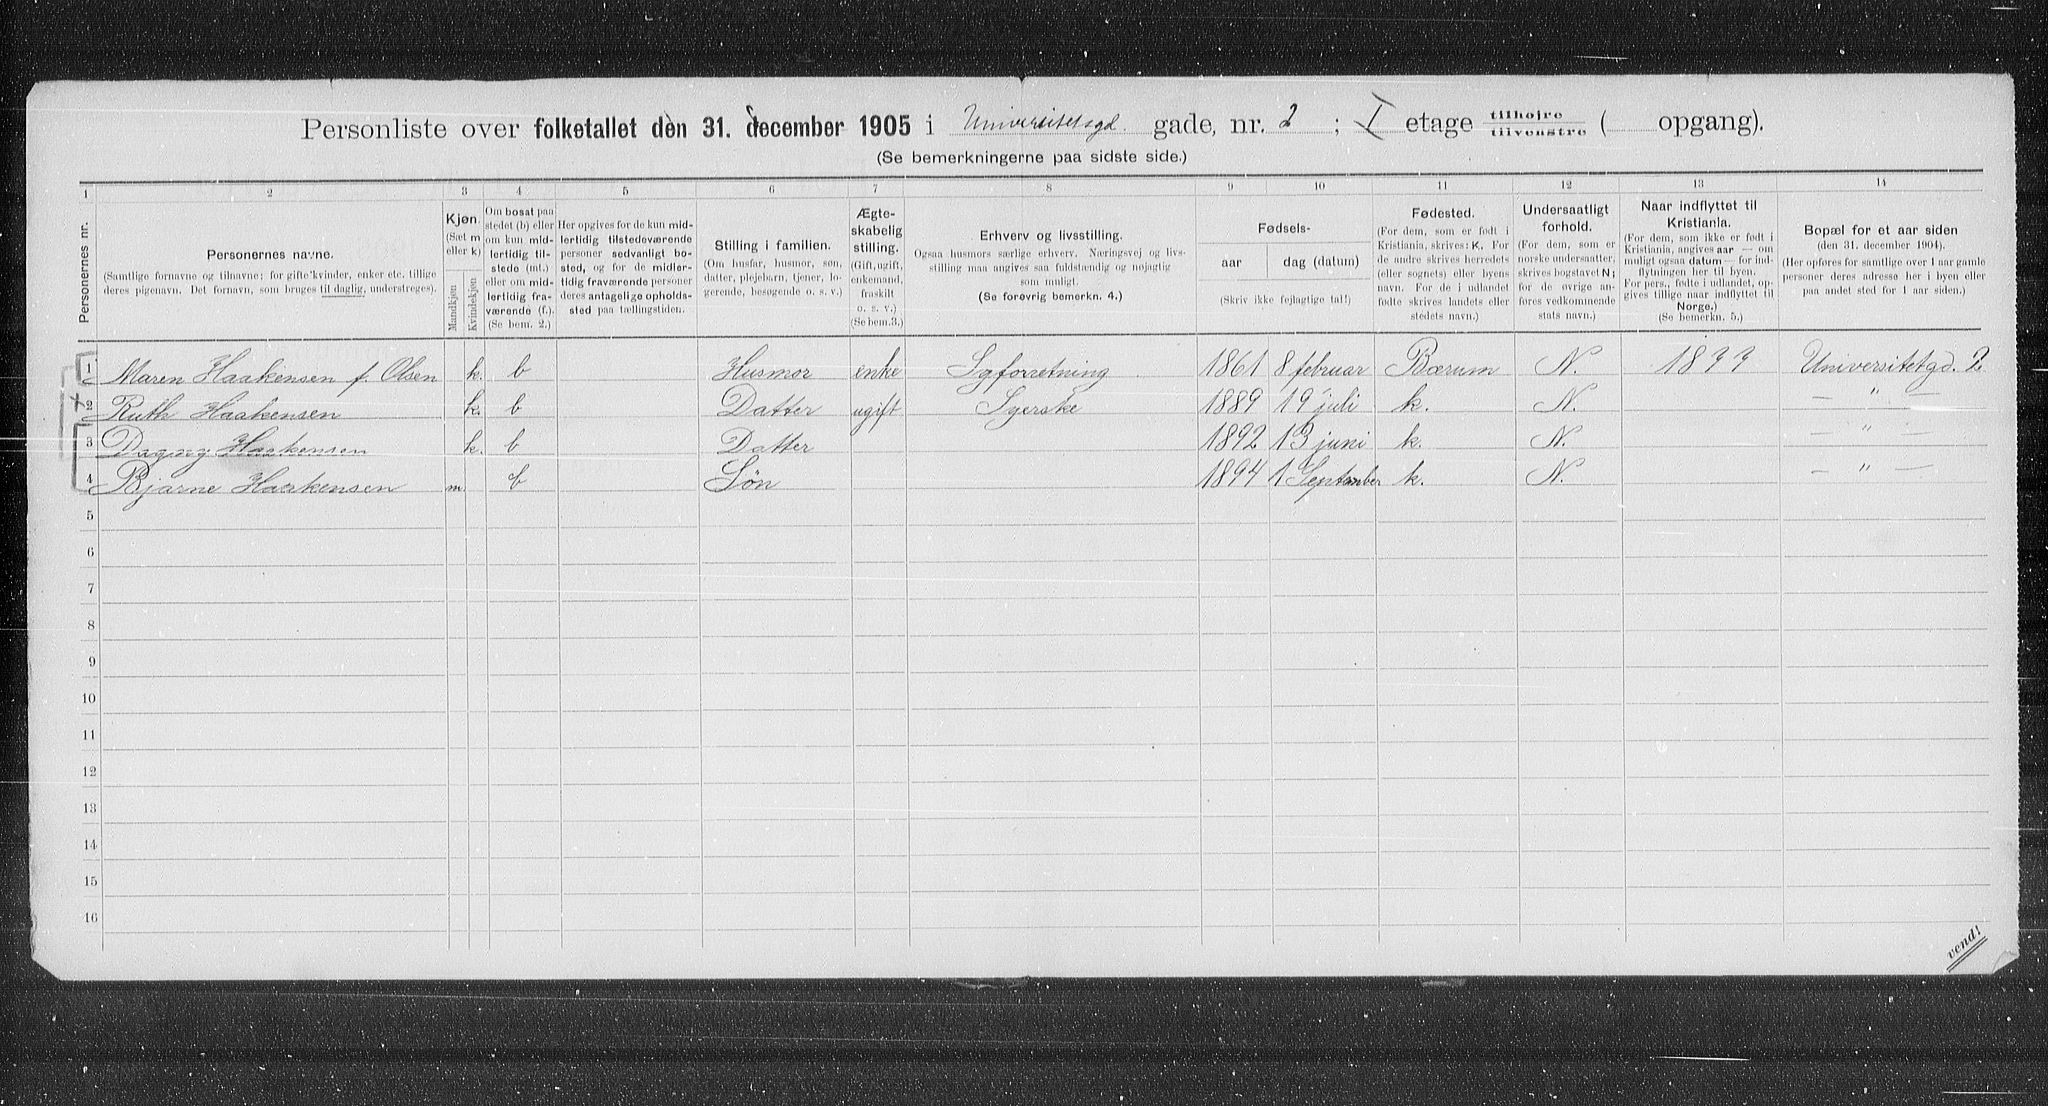 Personliste over folketallet den 31. december 1905 i Universitetsgd. gade, nr. 2 ; I etage tilhøjre tilvenstre ( opgang).
(Se bemerkningerne paa sidste side.)
1 2 3 4 5 6 7 8 9 10 11 12 13 14
Personernes nr.
Personernes navne.
(Samtlige fornavne og tilnavne; for gifte kvinder, enker etc. tillige
deres pigenavn. Det fornavn, som bruges til daglig, understreges).
Kjøn.
(Sæt m
eller k)
Mandkjøn
Kvindekjøn
Om bosat paa
stedet (b) eller
om kun mid-
lertidig til-
stede (mt.)
eller om mid-
lertidig fra-
værende (f.).
(Se bem. 2.)
Her opgives for de kun mid-
lertidig tilstedeværende
personer sedvanligt bo-
sted, og for de midler-
tidig fraværende personer
deres antagelige opholds-
sted paa tællingstiden.
Stilling i familien.
(Om husfar, husmor, søn,
datter, plejebarn, tjener, lo-
gerende, besøgende o. s. v.)
Ægte-
skabelig
stilling.
(Gift, ugift,
enkemand,
fraskilt
o. s. v.)
(Se bem.3.)
Erhverv og livsstilling.
Ogsaa husmors særlige erhverv. Næringsvej og livs-
stilling maa angives saa fuldstændig og nøjagtig
som muligt.
(Se forøvrig bemerkn. 4.)
Fødsels-
aar
dag (datum)
(Skriv ikke fejlagtige tal!)
Fødested.
(For dem, som er født i
Kristiania, skrives: K. For
de andre skrives herredets
(eller sognets) eller byens
navn. For de i udlandet
fødte skrives landets eller
stedets navn.)
Undersaatligt
forhold.
(For dem, som er
norske undersaatter,
skrives bogstavet N;
for de øvrige an-
føres vedkommende
stats navn.)
Naar indflyttet til
Kristiania.
(For dem, som ikke er født i
Kristiania, angives aar — om
muligt ogsaa datum — for ind-
flytningen her til byen.
For pers., fødte i udlandet, op-
gives tillige naar indflyttet til
Norge.)
(Se bemerkn. 5.)
Bopæl for et aar siden
(den 31. december 1904).
(Her opføres for samtlige over 1 aar gamle
personer deres adresse her i byen eller
paa andet sted for 1 aar siden.)
1 Maren Haakensen f. Olsen k. b Husmor enke Syforretning 1861 8 februar Bærum N. 1877 Universitetgd. 2
2 Ruth Haakensen k. b Datter ugift Syerske 1889 19 juli k. N. — " —
3 Dagny Haakensen k. b Datter 1892 13 juni k. N. — " —
4 Bjarne Haakensen m. b Søn 1894 1 September k. N. — " —
5
6
7
8
9
10
11
12
13
14
15
16
vend!